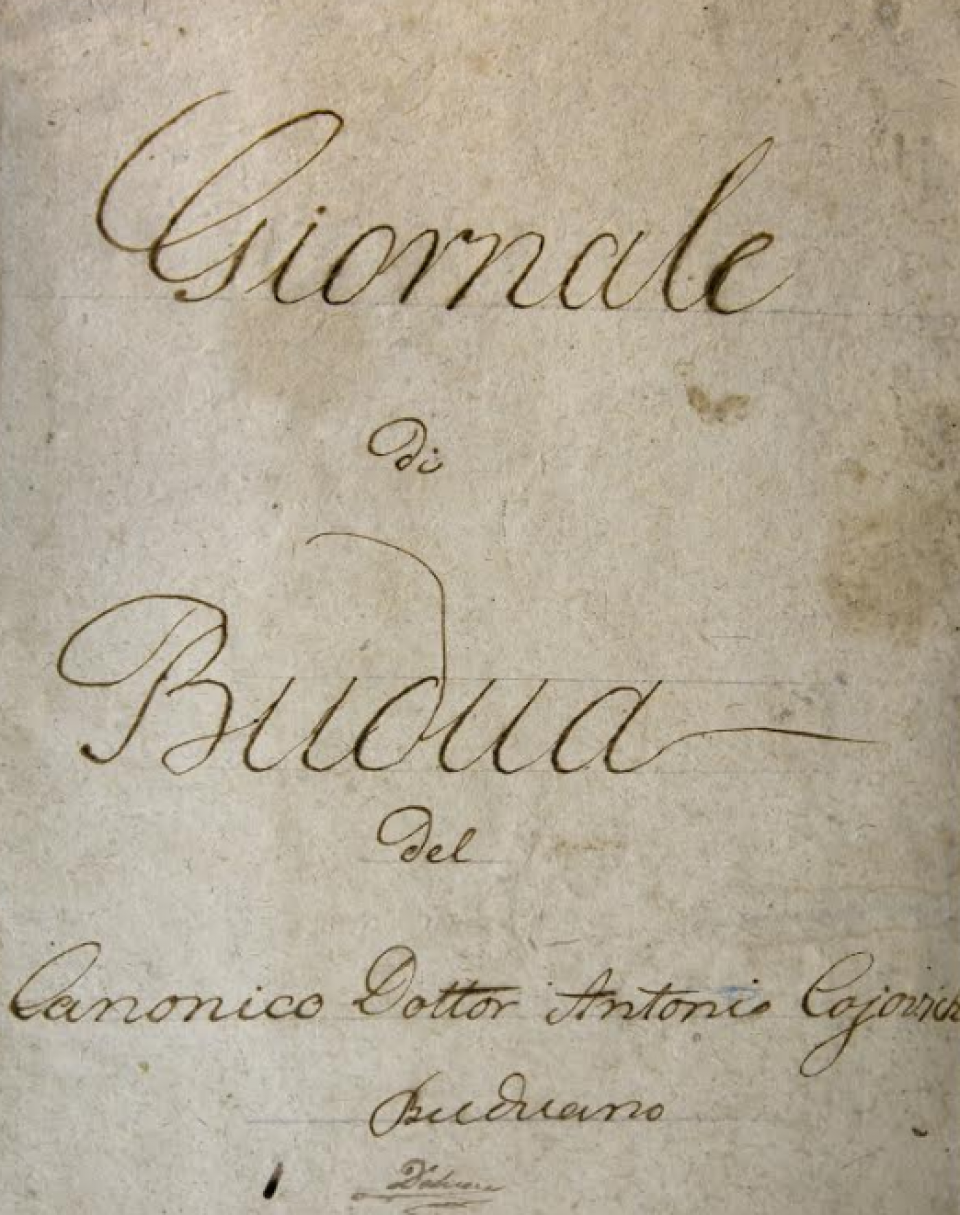 Giornale
di
Budua
del
Canonico Dottor Antonio Cojovich
Buduano